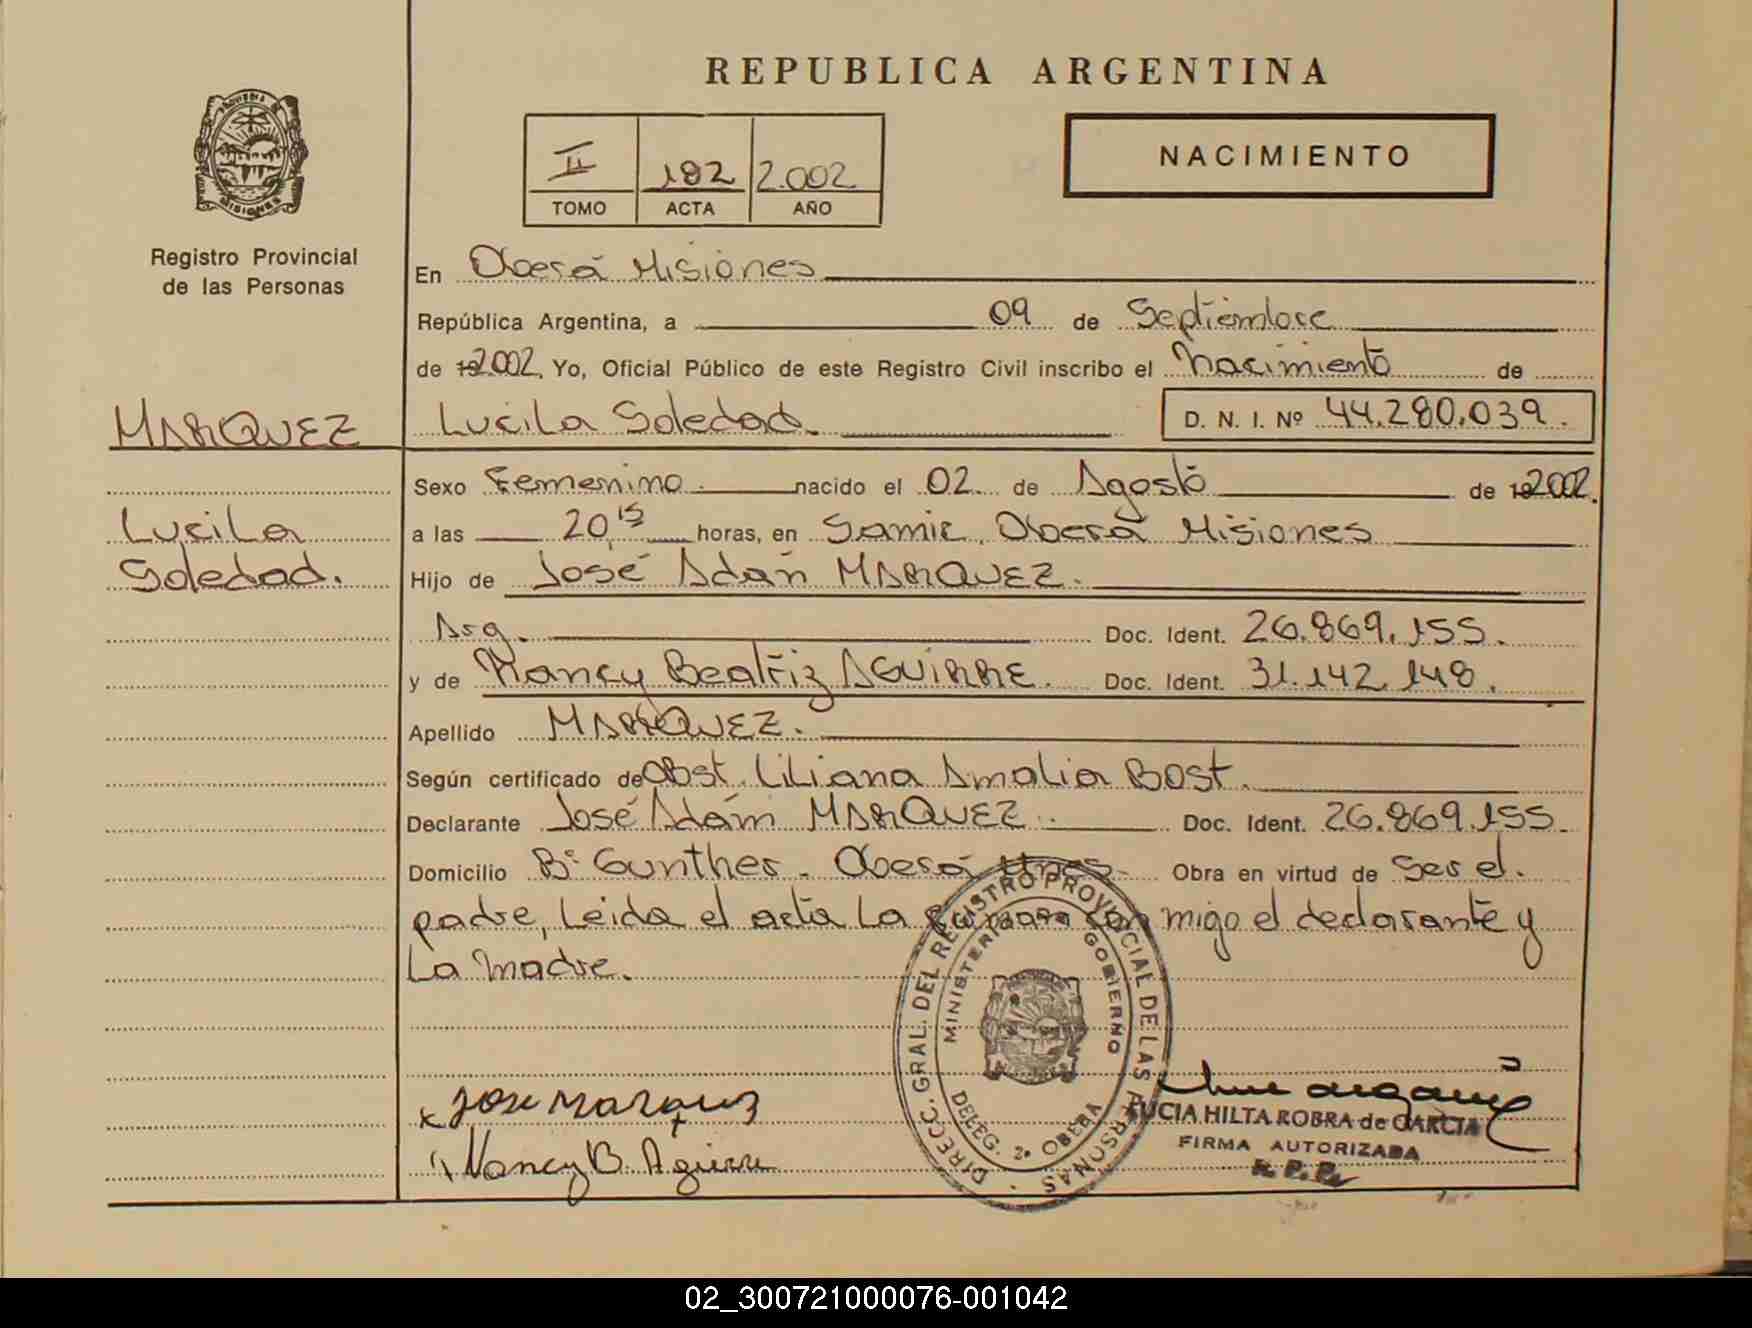 REPUBLICA ARGENTINA
PROVINCIA DE
MISIONES
II 182 2.002
TOMO ACTA AÑO
NACIMIENTO
Registro Provincial
de las Personas
En Oberá Misiones
República Argentina, a 09 de Septiembre
de 192.002, Yo, Oficial Público de este Registro Civil inscribo el Nacimiento de
MARQUEZ Lucila Soledad. D. N. I. Nº 44.280.039.
Sexo Femenino. nacido el 02 de Agosto de 192002.
Lucila a las 20,15 horas, en Samic, Oberá Misiones
Soledad. Hijo de José Adán MARQUEZ.
Arg. Doc. Ident. 26.869.155.
y de Nancy Beatriz AGUIRRE. Doc. Ident. 31.142.148.
Apellido MARQUEZ.
Según certificado de Obst. Liliana Amalia Bost.
Declarante José Adán MARQUEZ. Doc. Ident. 26.869.155.
Domicilio Bº Gunther. Oberá Mnes. Obra en virtud de ser el.
padre, Leida el acta La firman con migo el declarante y
La madre.
DIRECC. GRAL. DEL REGISTRO PROVINCIAL DE LAS PERSONAS
MINISTERIO DE GOBIERNO
DELEG. 2ª OBERA
x Jose Marquez
Nancy B. Aguirre
LUCIA HILTA ROBRA de GARCIA
FIRMA AUTORIZADA
R. P. P.
02_300721000076-001042